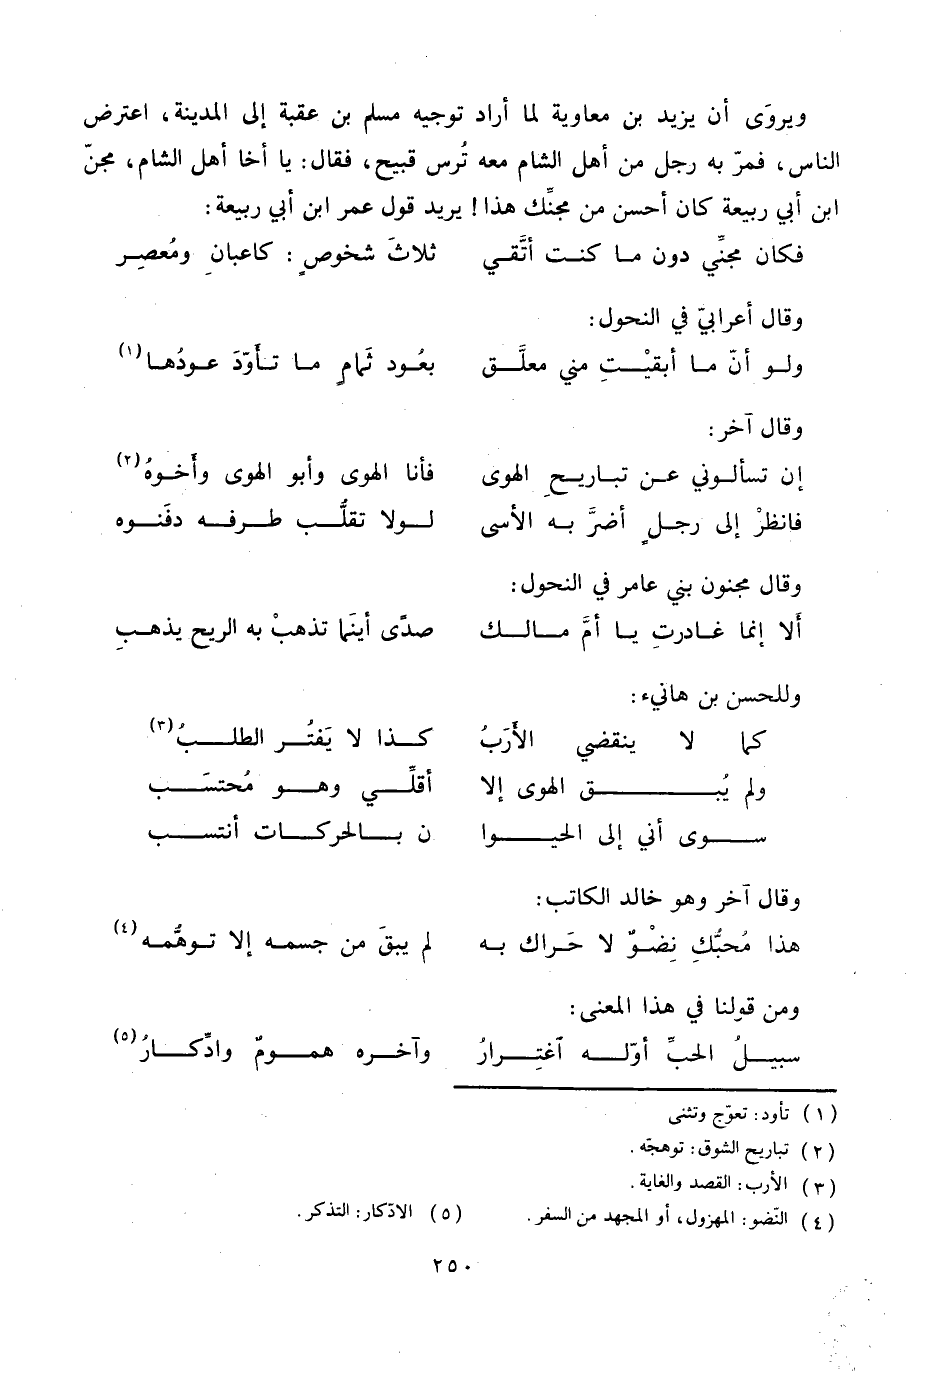 ويروَى أن يزيد بن معاوية لما أراد توجيه مسلم بن عقبة إلى المدينة، اعترض
الناس، فمرّ به رجل من أهل الشام معه تُرس قبيح، فقال: يا أخا أهل الشام، مجنّ
ابن أبي ربيعة كان أحسن من مجنِّك هذا! يريد قول عمر ابن أبي ربيعة:
فكان مجنِّي دون ما كنت أتَّقي ثلاثَ شخوصٍ: كاعبانِ ومُعصِر
وقال أعرابيّ في النحول:
ولو أنّ ما أبقيْتِ مني معلَّق بعُود ثُمامٍ ما تأوّدَ عودُها (١)
وقال آخر:
إن تسألوني عن تباريحِ الهوى فأنا الهوى وأبو الهوى وأَخوهُ (٢)
فانظرْ إلى رجلٍ أضرَّ به الأسى لولا تقلُّب طرفه دفَنوه
وقال مجنون بني عامر في النحول:
ألا إنما غادرتِ يا أمَّ مالك صدًى أينَما تذهبْ به الريح يذهبِ
وللحسن بن هانيء:
كما لا ينقضي الأَرَبُ كذا لا يَفتُر الطلبُ (٣)
ولم يُبق الهوى إلا أقلِّي وهو مُحتسَب
سوى أني إلى الحيوا ن بالحركات أنتسب
وقال آخر وهو خالد الكاتب:
هذا مُحبُّكِ نِضْوٌ لا حَراك به لم يبقَ من جسمه إلا توهُّمه (٤)
ومن قولنا في هذا المعنى:
سبيلُ الحبِّ أوّله اَغتِرارُ وآخره همومٌ وادِّكارُ (٥)
(١) تأود: تعوّج وتثنى
(٢) تباريح الشوق: توهجّه.
(٣) الأرب: القصد والغاية.
(٤) النّضو: المهزول، أو المجهد من السفر. (٥) الادّكار: التذكر.
٢٥٠